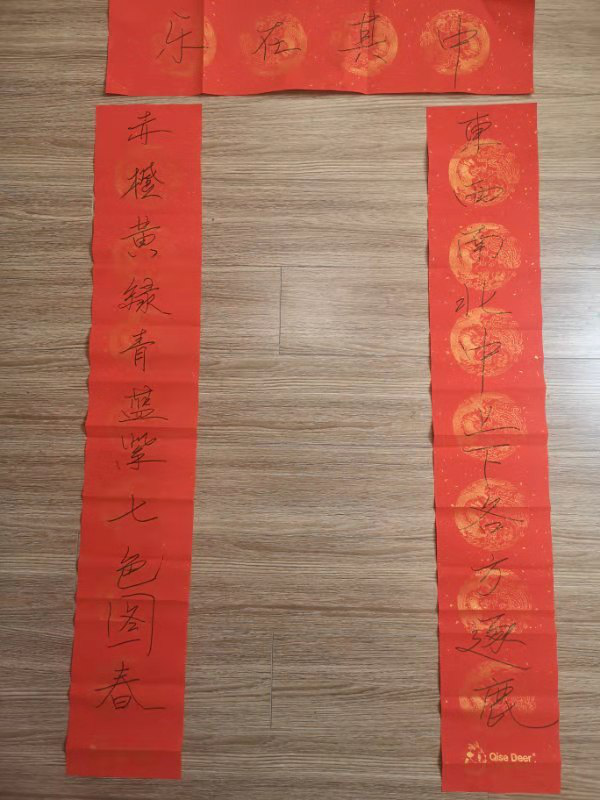 乐在其中
東西南北中上下各方逐鹿
赤橙黄緑青蓝紫七色图春
Qise Deer